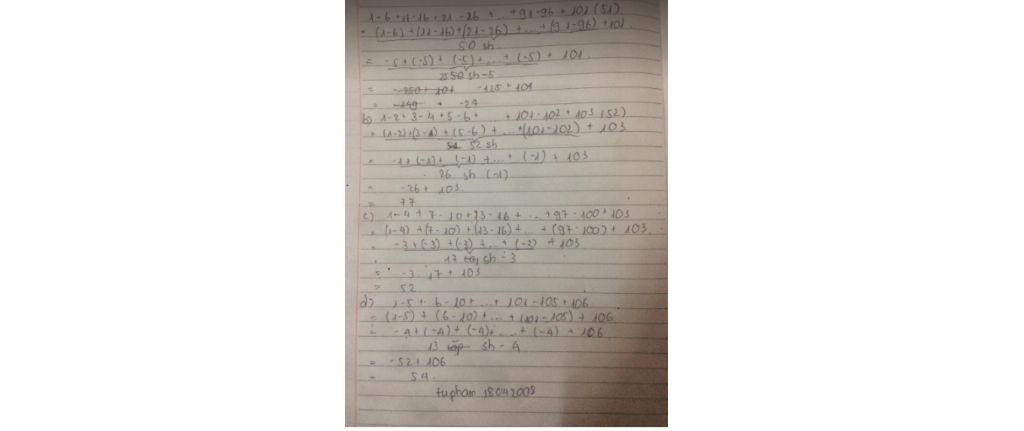 1-6+11-16+21-26+...+91-96+101 (51)
= (1-6)+(11-16)+(21-26)+...+(91-96)+101
50 sh
= -5+(-5)+(-5)+...+(-5)+101
sh-5
= -250+101 -125+101
= -149 = -24
b) 1-2+3-4+5-6+...+101-102+103 (52)
= (1-2)+(3-4)+(5-6)+...+(101-102)+103
52 sh
= -1+(-1)+(-1)+...+(-1)+103
26 sh (-1)
= -26+103
= 77
c) 1-4+7-10+13-16+...+97-100+103
= (1-4)+(7-10)+(13-16)+...+(97-100)+103
= -3+(-3)+(-3)+...+(-3)+103
17 cặp sh-3
= -3.17+103
= 52
d) 1-5+6-10+...+101-105+106
= (1-5)+(6-10)+...+(101-105)+106
= -4+(-4)+(-4)+...+(-4)+106
13 cặp sh-4
= -52+106
= 54.
tupham 18042008